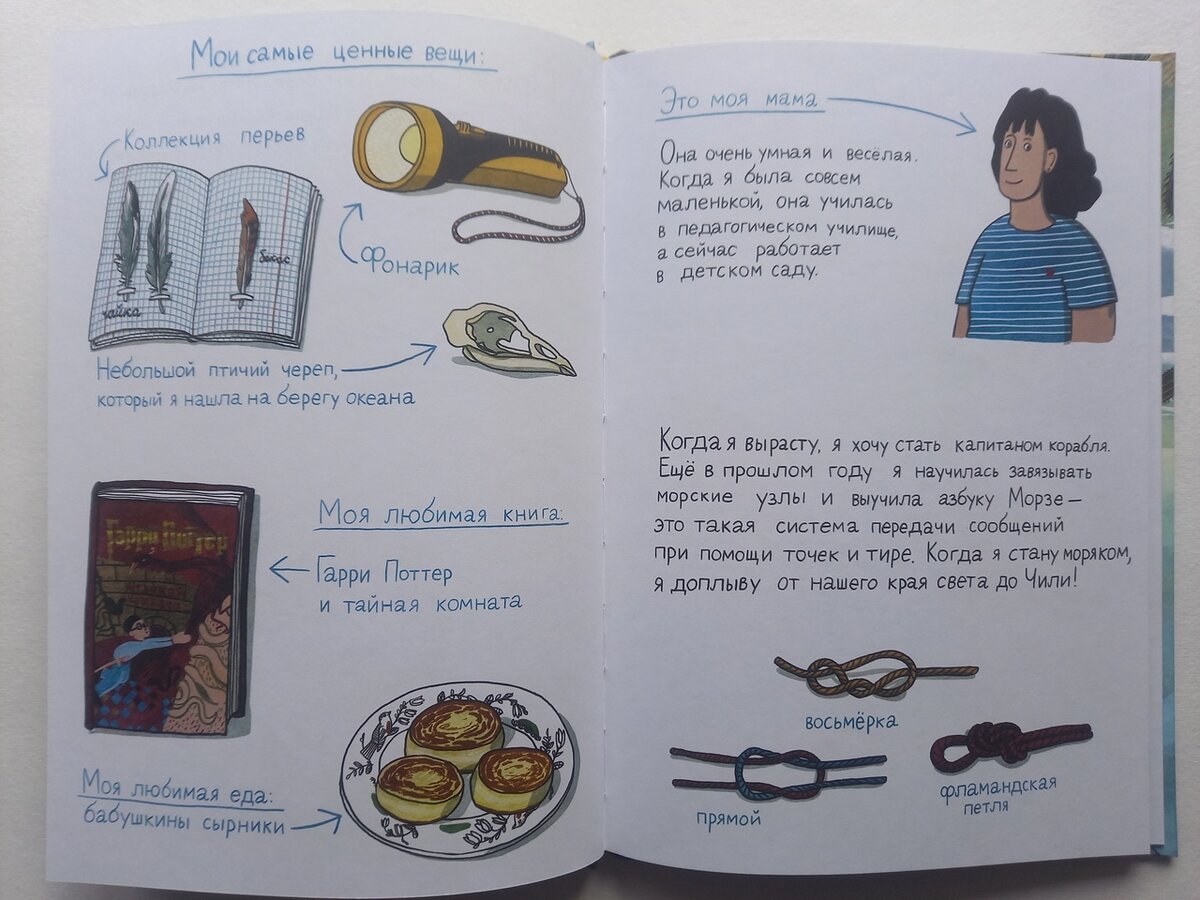 Мои самые ценные вещи:
Коллекция перьев
чайка
бекас
Фонарик
Небольшой птичий череп,
который я нашла на берегу океана
Гарри Поттер
Моя любимая книга:
Гарри Поттер
и тайная комната
Моя любимая еда:
бабушкины сырники
Это моя мама
Она очень умная и весёлая.
Когда я была совсем
маленькой, она училась
в педагогическом училище,
а сейчас работает
в детском саду.
Когда я вырасту, я хочу стать капитаном корабля.
Ещё в прошлом году я научилась завязывать
морские узлы и выучила азбуку Морзе —
это такая система передачи сообщений
при помощи точек и тире. Когда я стану моряком,
я доплыву от нашего края света до Чили!
восьмёрка
прямой
фламандская
петля